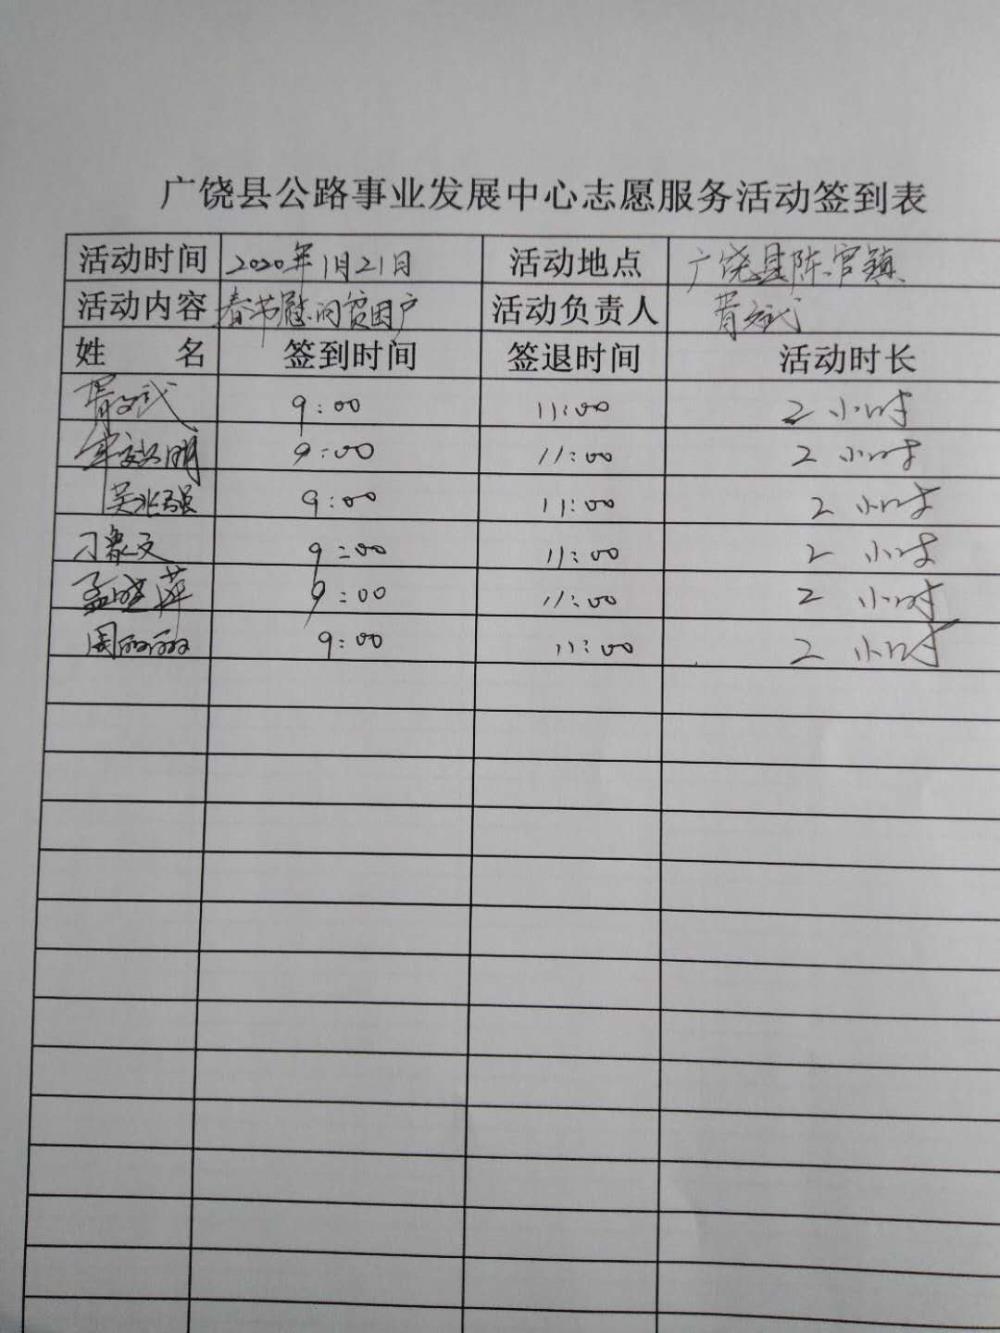 广饶县公路事业发展中心志愿服务活动签到表
活动时间 2020年1月21日 活动地点 广饶县陈官镇
活动内容 春节慰问贫困户 活动负责人
姓 名 签到时间 签退时间 活动时长
9:00 11:00 2小时
9:00 11:00 2小时
吴兆强 9:00 11:00 2小时
刁象文 9:00 11:00 2小时
孟晓萍 9:00 11:00 2小时
周丽丽 9:00 11:00 2小时